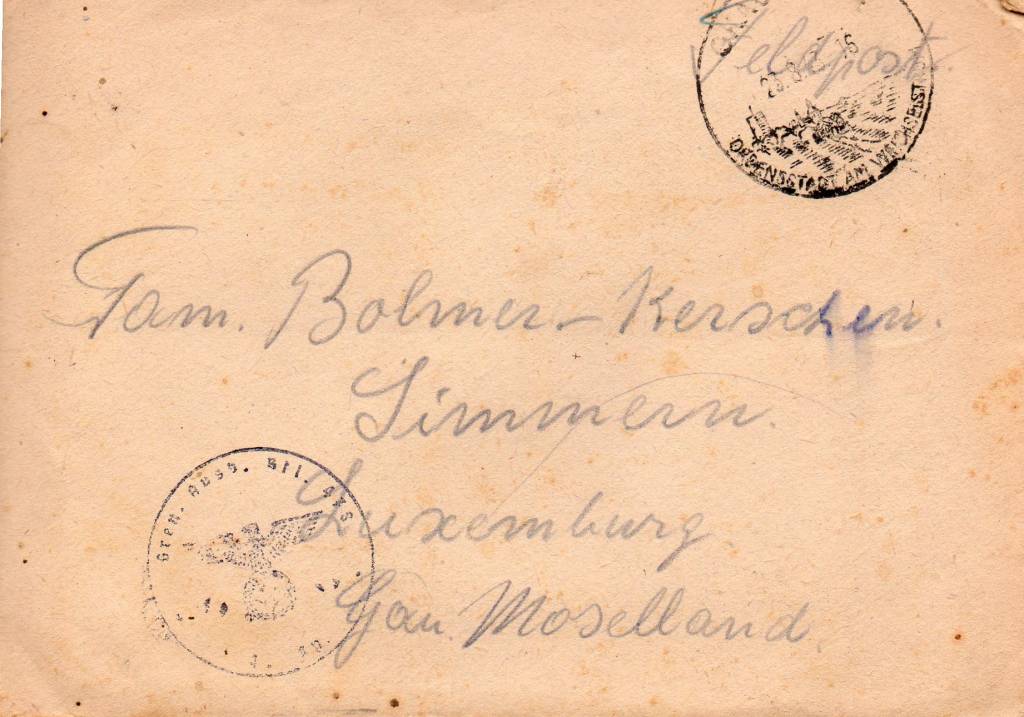 Feldpost.
ORDENSSTADT AM WEICHSELSTRAND
Fam. Bolmer.- Kerschen.
Simmern.
Luxemburg.
Gau. Moselland.
Gren. Ausb. Btl.